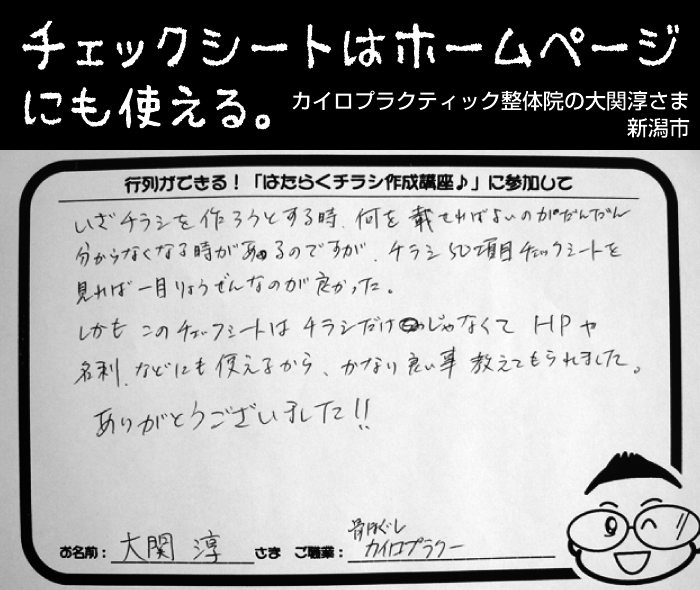 チェックシートはホームページ
にも使える。
カイロプラクティック整体院の大関淳さま
新潟市
行列ができる！「はたらくチラシ作成講座♪」に参加して
いざチラシを作ろうとする時、何を載せればよいのかだんだん
分からなくなる時があるのですが、チラシ50項目チェックシートを
見れば一目りょうぜんなのが良かった。
しかもこのチェックシートはチラシだけじゃなくてHPや
名刺、などにも使えるから、かなり良い事教えてもられました。
ありがとうございました!!
お名前：大関 淳 さま ご職業：骨ほぐし
カイロプラクター